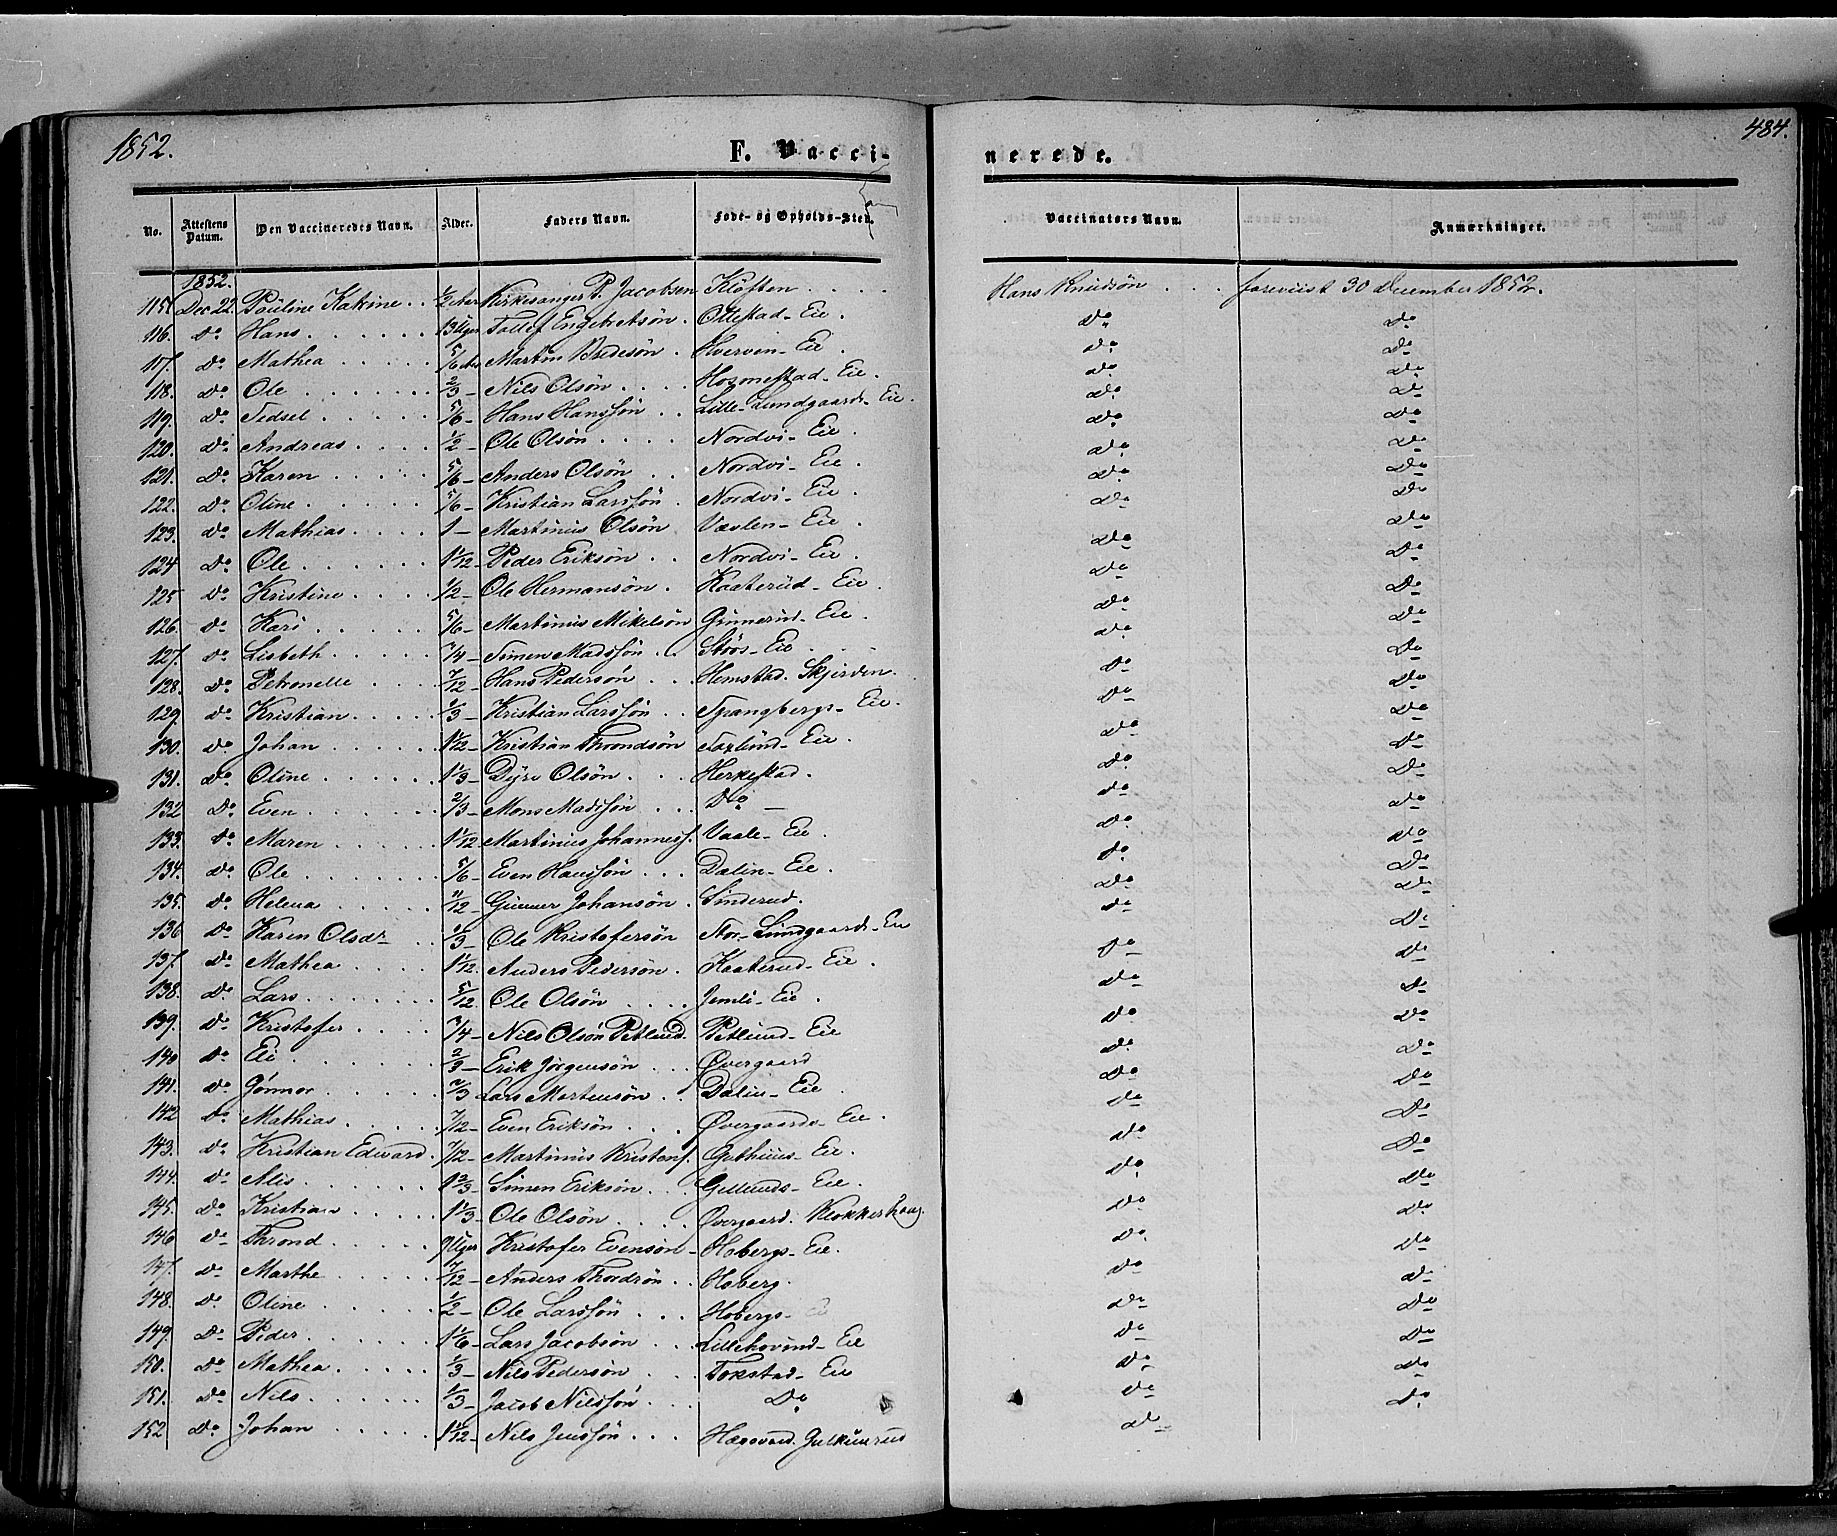 1852.
F. Vacci-
nerede.
484.
No. Attestens Datum. Den Vaccineredes Navn. Alder. Faders Navn. Føde- og Opholds-Sted. Vaccinators Navn. Anmærkninger.
1852.
115 Dec 22. Pauline Katrine . . 1/2 Kirkesanger P. Jacobsen Kløften . . . . Hans Knudsøn . . . foreviist 30 December 1852.
116. do Hans . . . . . . 13 Uger Tollef Engebretsøn . Ottestad- Eie . do do
117. do Mathea . . . . . 5/6 Martin Bredesøn . Hverven- Eie . do do
118. do Ole . . . . . . . 2/3 - Nils Olsøn . . . . Hosmestad- Eie . do do
119. do Sidsel . . . . . . 5/6 - Hans Hanssøn . . Lille- Lundgaards- Eie . do do
120. do Andreas . . . . 1/2 - Ole Olsøn . . . . Nordvi- Eie . do do
121. do Karen . . . . . . 5/6 - Anders Olsøn . . Nordvi- Eie . do do
122. do Oline . . . . . . 5/6 - Kristian Larssøn . Nordvi- Eie . do do
123. do Mathias . . . . 1 - Martinus Olsøn Vaslen- Eie . do do
124 do Ole . . . . . . . 1 1/12 - Peder Eriksøn . . Nordvi- Eie . do do
125 do Kristine . . . . 1/2 - Ole Hermansøn . Kaaterud- Eie . do do
126. do Kari . . . . . . 5/6 - Martinus Mikelsøn Gunnerud- Eie . do do
127. do Lisbeth . . . . . 3/4 - Simen Madssøn . . Støös- Eie . do do
128. do Petronelle . . . . 7/12 - Hans Pedersøn . . Hemstad. Skjerden . do do
129. do Kristian . . . . . 1/3 - Kristian Larssøn . . Spangbergs- Eie . do do
130. do Johan . . . . . . 1 1/12 - Kristian Throndsøn Saxlund- Eie . do do
131. do Oline . . . . . . 1 1/3 - Dyre Olsøn . . . Herkestad . do do
132 do Even . . . . . . 2/3 - Mons Madssøn . . . Do - do do
133. do Maren . . . . . 1 1/12 - Martinus Johanness. Vaale- Eie . do do
134. do Ole . . . . . . . 5/6 - Even Hanssøn . . . Dalin- Eie . do do
135. do Helena . . . . . 11/12 - Gunner Johansøn . Sinderud . do do
136 do Karen Olsdr . . 1/3 - Ole Kristofersøn Stor- Lundgaards- Eie do do
137. do Mathea . . . . 1 1/12. Anders Pedersøn . Kaaterud- Eie . do do
138. do Lars . . . . . . 5/12. Ole Olsøn . . . . Jemli- Eie . do do
139. do Kristofer . . . . 3/4 - Nils Olsøn Petlund. Petlund- Eie do do
140 do Eli . . . . . . . 2/3 - Erik Jørgensøn . . . Øvergaard do do
141. do Gønnor . . . . . 2/3 Lars Mortensøn . . Dalin- Eie . do do
142 do Mathias . . . . . 7/12 - Even Eriksøn . . . Øvergaards- Eie . do do
143. do Kristian Edward . 7/12 - Martinus Kristens. Guthuus- Eie . do do
144. do Alis . . . . . . . 1 2/3 - Simen Eriksøn . . Gullunds- Eie . do do
145. do Kristian . . . . . 1 1/3 - Ole Olsøn . . . . Øvergaard. Klokkerhaug. do do
146 do Thrond . . . . . 9 Uger Kristofer Evensøn - Hobergs- Eie . do do
147. do Marthe . . . . . 7/12 - Anders Thordsøn . . Hoberg . do do
148. do Oline . . . . . . 1/2 - Ole Larssøn . . . Hobergs- do do
149. do Peder . . . . . . 1 1/6 - Lars Jacobsøn . . . Lillehovind- Eie do do
150. do Mathea . . . . . 1/3 - Nils Pedersøn . . . Tokstad- Eie do do
151. do Nils . . . . . . 1/3 - Jacob Nilssøn . . . Do do do
152 do Johan . . . . . 1 1/12 - Nils Jenssøn . . . Hægvard. do